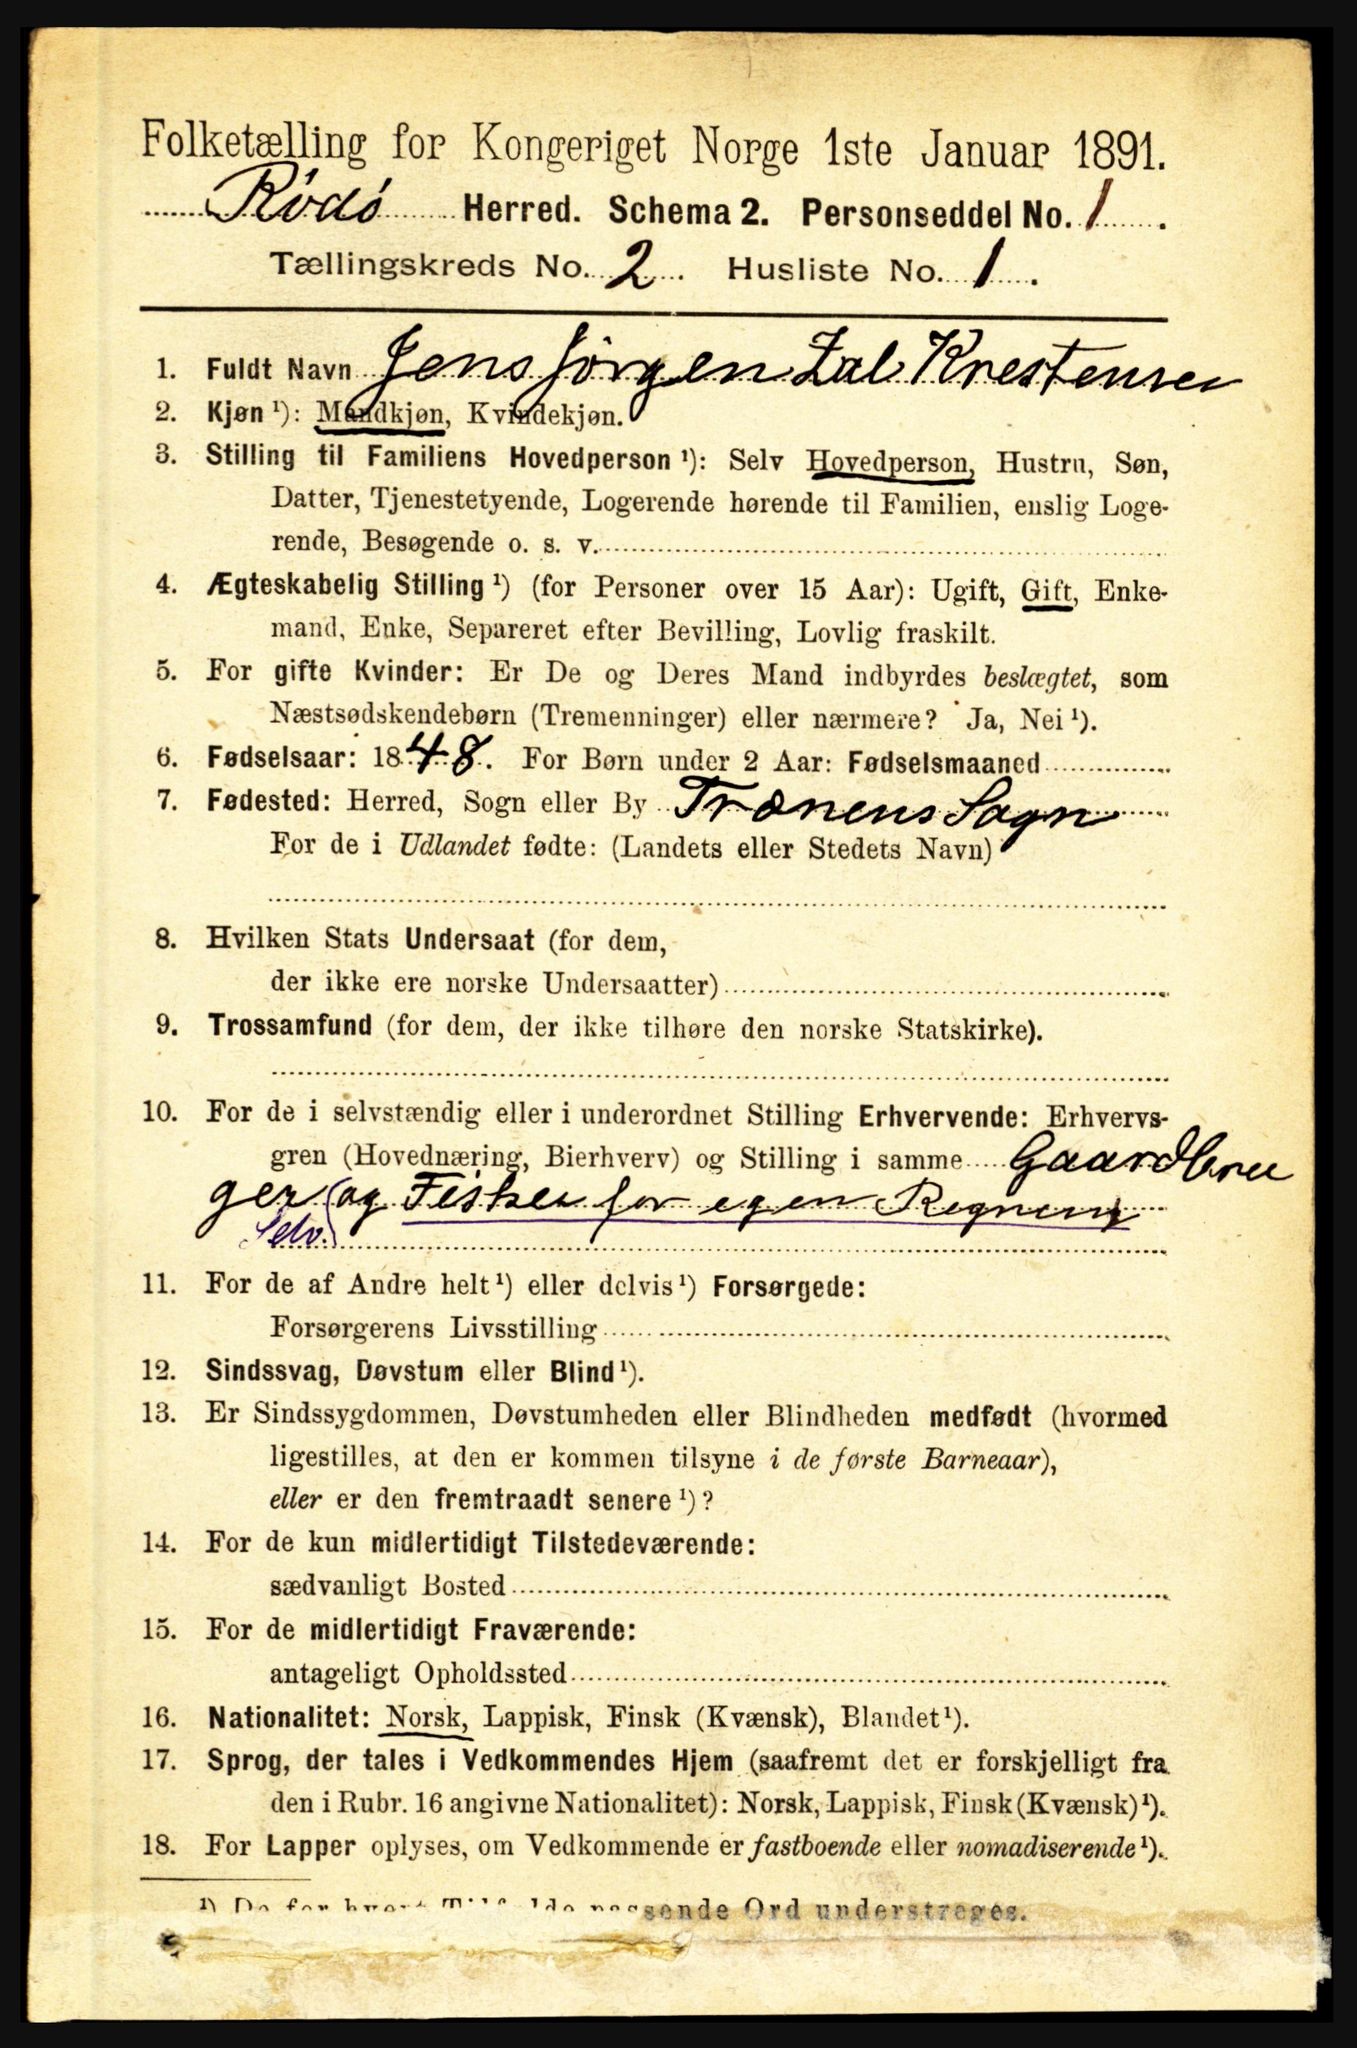 Folketælling for Kongeriget Norge 1ste Januar 1891.
Rödö Herred. Schema 2. Personseddel No. 1.
Tællingskreds No. 2. Husliste No. 1.
1. Fuldt Navn Jens Jörgen Zal Krestensen
2. Kjøn ¹): Mandkjøn, Kvindekjøn.
3. Stilling til Familiens Hovedperson ¹): Selv Hovedperson, Hustru, Søn,
Datter, Tjenestetyende, Logerende hørende til Familien, enslig Loge-
rende, Besøgende o. s. v.
4. Ægteskabelig Stilling ¹) (for Personer over 15 Aar): Ugift, Gift, Enke-
mand, Enke, Separeret efter Bevilling, Lovlig fraskilt.
5. For gifte Kvinder: Er De og Deres Mand indbyrdes beslægtet, som
Næstsødskendebørn (Tremenninger) eller nærmere? Ja, Nei ¹).
6. Fødselsaar: 1848. For Børn under 2 Aar: Fødselsmaaned
7. Fødested: Herred, Sogn eller By Trænens Sogn
For de i Udlandet fødte: (Landets eller Stedets Navn)
8. Hvilken Stats Undersaat (for dem,
der ikke ere norske Undersaatter)
9. Trossamfund (for dem, der ikke tilhøre den norske Statskirke).
10. For de i selvstændig eller i underordnet Stilling Erhvervende: Erhvervs-
gren (Hovednæring, Bierhverv) og Stilling i samme Gaardbru
ger og Fisker for egen Regning
Selv.
11. For de af Andre helt ¹) eller delvis ¹) Forsørgede:
Forsørgerens Livsstilling
12. Sindssvag, Døvstum eller Blind ¹).
13. Er Sindssygdommen, Døvstumheden eller Blindheden medfødt (hvormed
ligestilles, at den er kommen tilsyne i de første Barneaar),
eller er den fremtraadt senere ¹)?
14. For de kun midlertidigt Tilstedeværende:
sædvanligt Bosted
15. For de midlertidigt Fraværende:
antageligt Opholdssted
16. Nationalitet: Norsk, Lappisk, Finsk (Kvænsk), Blandet ¹).
17. Sprog, der tales i Vedkommendes Hjem (saafremt det er forskjelligt fra
den i Rubr. 16 angivne Nationalitet): Norsk, Lappisk, Finsk (Kvænsk) ¹).
18. For Lapper oplyses, om Vedkommende er fastboende eller nomadiserende ¹).
¹) De for hvert Tilfælde passende Ord understreges.